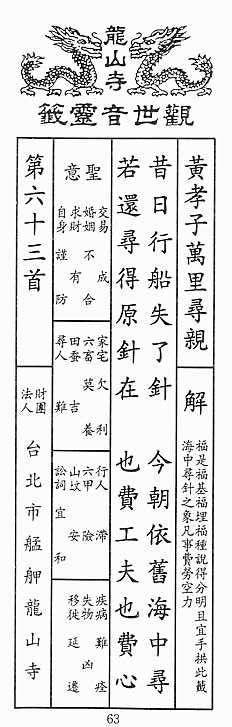 龍山寺
觀世音靈籤
黃孝子萬里尋親
解
福是福基福埋福種說得分明且宜手拱此籤
海中尋針之象凡事費勞空力
昔日行船失了針 今朝依舊海中尋
若還尋得原針在 也費工夫也費心
聖意
交易 成
婚姻 不合
求財 有
自身 謹防
家宅 欠利
六畜 莫養
田蚕 吉
尋人 難
行人 滯
六甲 險
山坟 安
訟詞 宜和
疾病 難痊
失物 凶
移徙 延遷
第六十三首
財團
法人
台北市艋舺龍山寺
63